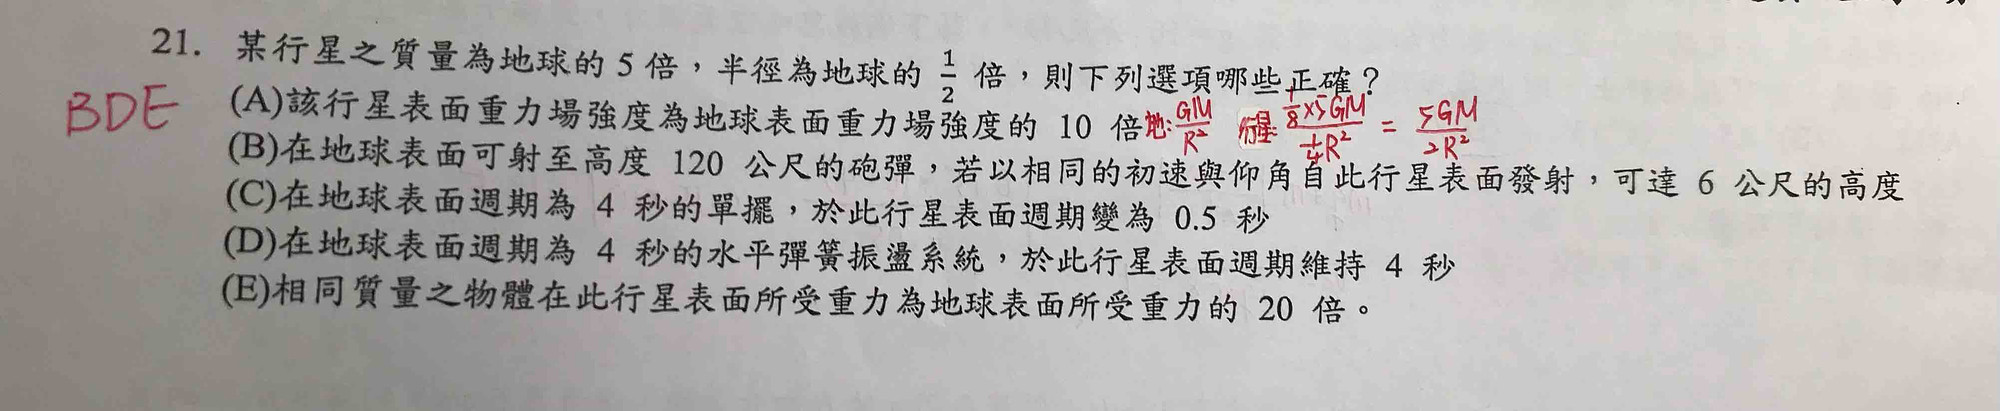 21. 某行星之質量為地球的 5 倍，半徑為地球的 1/2 倍，則下列選項哪些正確？
BDE
(A)該行星表面重力場強度為地球表面重力場強度的 10 倍
地: GM/R² 行星: (1/8×5GM)/(1/4R²) = 5GM/2R²
(B)在地球表面可射至高度 120 公尺的砲彈，若以相同的初速與仰角自此行星表面發射，可達 6 公尺的高度
(C)在地球表面週期為 4 秒的單擺，於此行星表面週期變為 0.5 秒
(D)在地球表面週期為 4 秒的水平彈簧振盪系統，於此行星表面週期維持 4 秒
(E)相同質量之物體在此行星表面所受重力為地球表面所受重力的 20 倍。